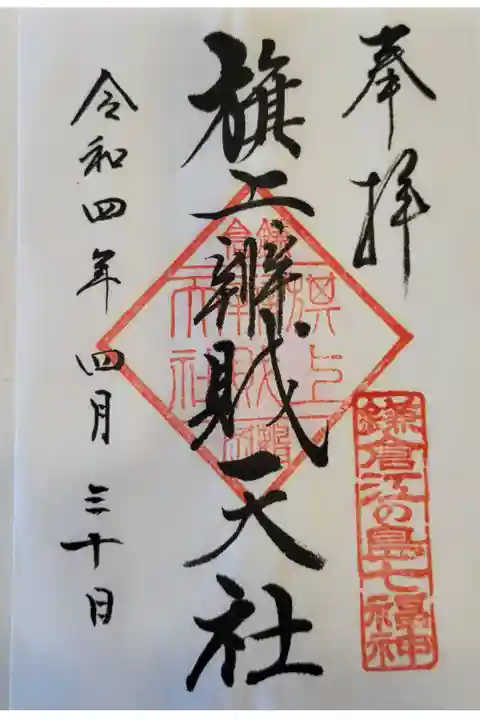 奉拝
鎌倉江の島七福神
旗上辨財天社
令和四年四月三十日